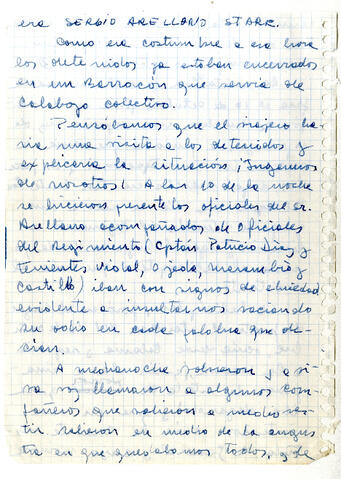 era SERGIO ARELLANO STARK.
Como era costumbre a esa hora
los detenidos ya estaban encerrados
en un Barracón que servía de
calabozo colectivo.
Pensábamos que el viajero ha-
ría una visita a los detenidos y
explicaría la situación ¡Ingenuos
de nosotros! A las 10 de la noche
se hicieron presente los oficiales del sr.
Arellano acompañados de oficiales
del Regimiento (Cptán Patricio Díaz y
tenientes Vidal, Ojeda, Marambio y
Castillo) iban con signos de ebriedad
evidente a insultarnos vaciando
su odio en cada palabra que de-
cían.
A medianoche volvieron y a vi-
va voz llamaron a algunos com-
pañeros, que salieron a medio ves-
tir. Salieron en medio de la angus-
tia en que quedábamos todos, y de